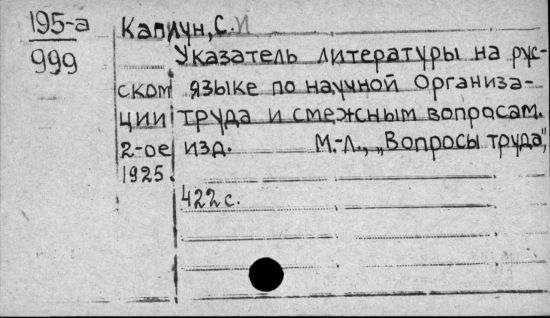 195-а
999
Каплун, С. И
Указатель литературы на рус-
ском языке по научной организа-
ции труда и смежным вопросам.
2-ое изд. М.-Л., „Вопросы труда",
1925.
422 с.